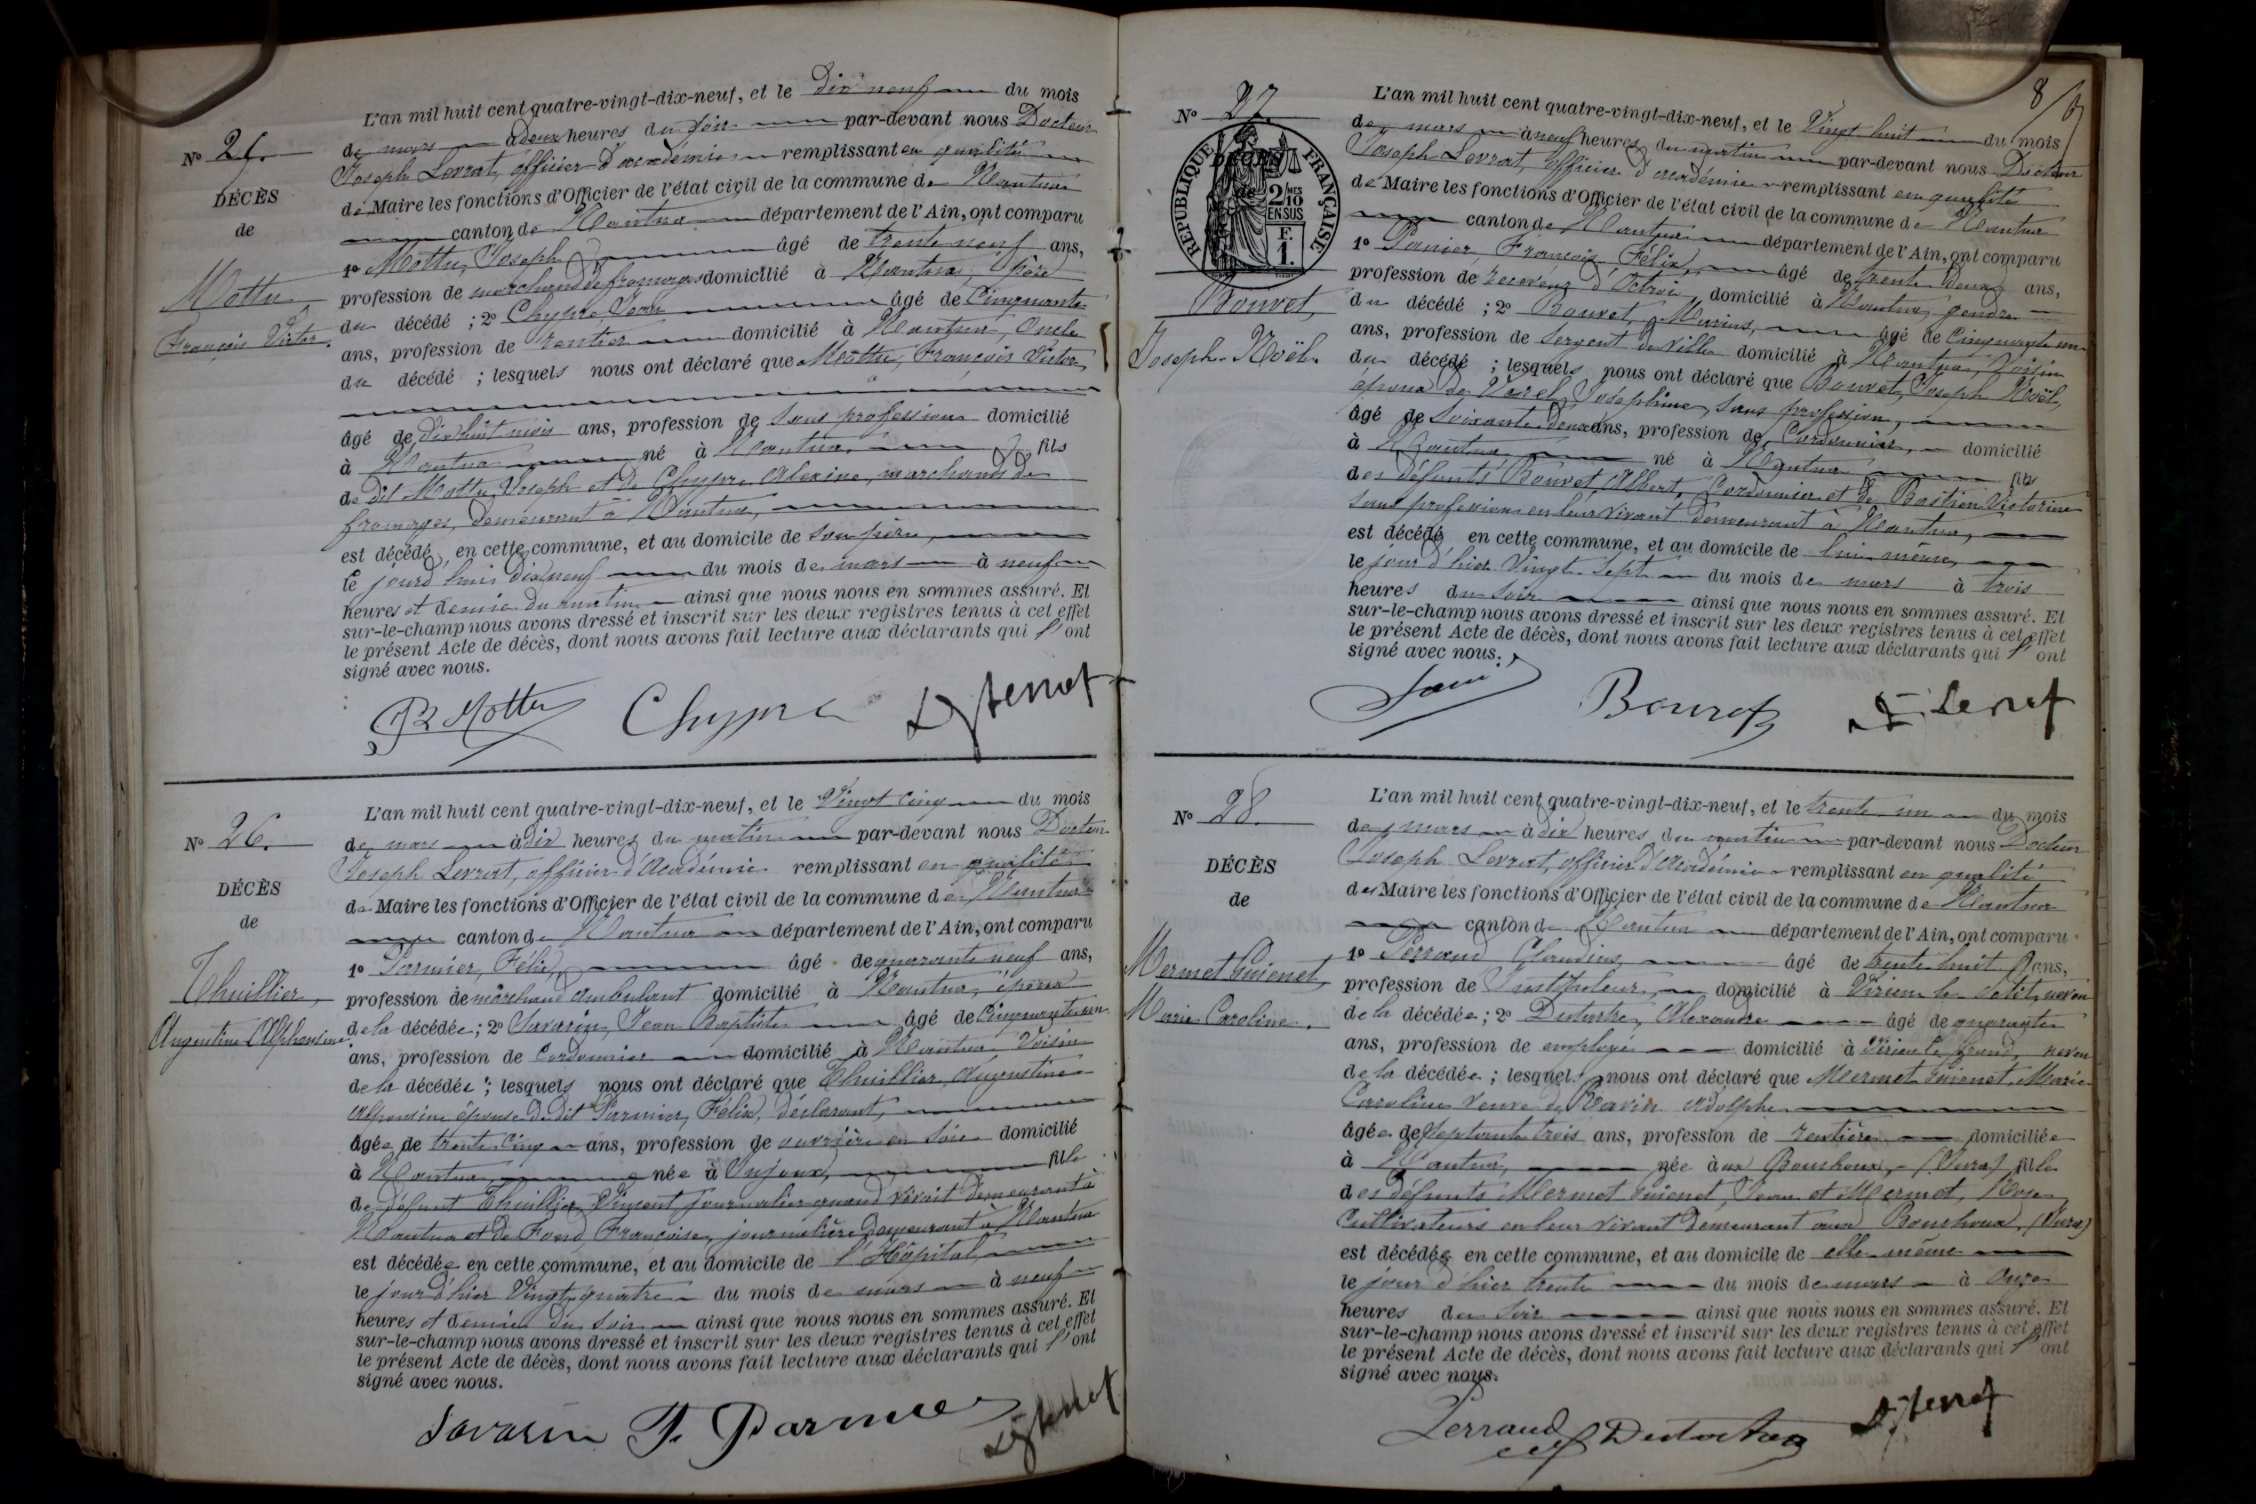 N° 25.
DÉCÈS
de
Mottu
François Victor.
L'an mil huit cent quatre-vingt-dix-neuf, et le Dix neuf du mois
de mars à deux heures du soir par-devant nous Docteur
Joseph Levrat, officier d'académie remplissant en qualité
de Maire les fonctions d'Officier de l'état civil de la commune de Nantua
canton de Nantua département de l'Ain, ont comparu
1° Mottu, Joseph âgé de trente neuf ans,
profession de marchand de fromages domicilié à Nantua, père
du décédé ; 2° Chypre Jean âgé de Cinquante
ans, profession de rentier domicilié à Nantua, Oncle
du décédé ; lesquels nous ont déclaré que Mottu, François Victor
âgé de dix huit mois ans, profession de sans profession domicilié
à Nantua né à Nantua fils
de dit Mottu, Joseph et de Chypre Alexine, marchands de
fromages, demeurant à Nantua,
est décédé en cette commune, et au domicile de son père,
le jourd'hui dix neuf du mois de mars à neuf
heures et demie du matin ainsi que nous nous en sommes assuré. Et
sur-le-champ nous avons dressé et inscrit sur les deux registres tenus à cet effet
le présent Acte de décès, dont nous avons fait lecture aux déclarants qui l'ont
signé avec nous.
Mottu Chypre Dr Levrat
N° 26.
DÉCÈS
de
Thuillier,
Augustine Alphonsine.
L'an mil huit cent quatre-vingt-dix-neuf, et le Vingt cinq du mois
de mars à dix heures du matin par-devant nous Docteur
Joseph Levrat, officier d'Académie remplissant en qualité
de Maire les fonctions d'Officier de l'état civil de la commune de Nantua
canton de Nantua département de l'Ain, ont comparu
1° Parmier, Félix, âgé de quarante neuf ans,
profession de marchand ambulant domicilié à Nantua, époux
de la décédée ; 2° Savarin, Jean Baptiste âgé de Cinquante un
ans, profession de Cordonnier domicilié à Nantua Voisin
de la décédée ; lesquels nous ont déclaré que Thuillier, Augustine
Alphonsine épouse de dit Parmier, Félix, déclarant,
âgée de trente cinq ans, profession de ouvrière en soie domicilié
à Nantua née à Injoux, fille
de défunt Thuillier Vincent journalier quand vivait demeurant à
Nantua et de Fond Françoise, journalière demeurant à Nantua
est décédée en cette commune, et au domicile de l'Hôpital
le jour d'hier Vingt quatre du mois de mars à neuf
heures et demie du soir ainsi que nous nous en sommes assuré. Et
sur-le-champ nous avons dressé et inscrit sur les deux registres tenus à cet effet
le présent Acte de décès, dont nous avons fait lecture aux déclarants qui l'ont
signé avec nous.
Savarin F. Parmier Dr Levrat
8
N° 27.
RÉPUBLIQUE FRANÇAISE
2/10 EN SUS
F. 1.
Bouvet,
Joseph-Noël.
L'an mil huit cent quatre-vingt-dix-neuf, et le Vingt huit du mois
de mars à neuf heures du matin par-devant nous Docteur
Joseph Levrat, officier d'académie remplissant en qualité
de Maire les fonctions d'Officier de l'état civil de la commune de Nantua
canton de Nantua département de l'Ain, ont comparu
1° François Félix, âgé de trente deux ans,
profession de receveur d'Octroi domicilié à Nantua, gendre
du décédé ; 2° Bouvet, Marius, âgé de Cinquante un
ans, profession de Sergent de ville domicilié à Nantua, Voisin
du décédé ; lesquels nous ont déclaré que Bouvet, Joseph Noël,
époux de Joséphine, sans profession,
âgé de Soixante deux ans, profession de Cordonnier, domicilié
à Nantua né à Nantua fils
des défunts Bouvet Albert, Cordonnier et de Bastian Victorine
sans profession en leur vivant demeurant à Nantua,
est décédé en cette commune, et au domicile de lui même,
le jour d'hier Vingt sept du mois de mars à trois
heures du soir ainsi que nous nous en sommes assuré. Et
sur-le-champ nous avons dressé et inscrit sur les deux registres tenus à cet effet
le présent Acte de décès, dont nous avons fait lecture aux déclarants qui l'ont
signé avec nous.
Bouvet Dr Levrat
N° 28.
DÉCÈS
de
Mermet Guienet,
Marie Caroline.
L'an mil huit cent quatre-vingt-dix-neuf, et le trente un du mois
de mars à dix heures du matin par-devant nous Docteur
Joseph Levrat, officier d'Académie remplissant en qualité
de Maire les fonctions d'Officier de l'état civil de la commune de Nantua
canton de Nantua département de l'Ain, ont comparu
1° Perraud Claudius, âgé de trente huit ans,
profession de Instituteur, domicilié à Virieu le Petit, neveu
de la décédée ; 2° Alexandre âgé de quarante
ans, profession de employé domicilié à Virieu le grand, neveu
de la décédée ; lesquels nous ont déclaré que Mermet Guienet, Marie
Caroline Veuve de Ravier Adolphe
âgée de Septante trois ans, profession de rentière domiciliée
à Nantua, née à aux Bouchoux, (Jura) fille
des défunts Mermet Guienet, Jean et Mermet, Rose
Cultivateurs en leur vivant demeurant aux Bouchoux, (Jura)
est décédée en cette commune, et au domicile de elle même
le jour d'hier trente du mois de mars à onze
heures du soir ainsi que nous nous en sommes assuré. Et
sur-le-champ nous avons dressé et inscrit sur les deux registres tenus à cet effet
le présent Acte de décès, dont nous avons fait lecture aux déclarants qui l'ont
signé avec nous.
Perraud Dr Levrat